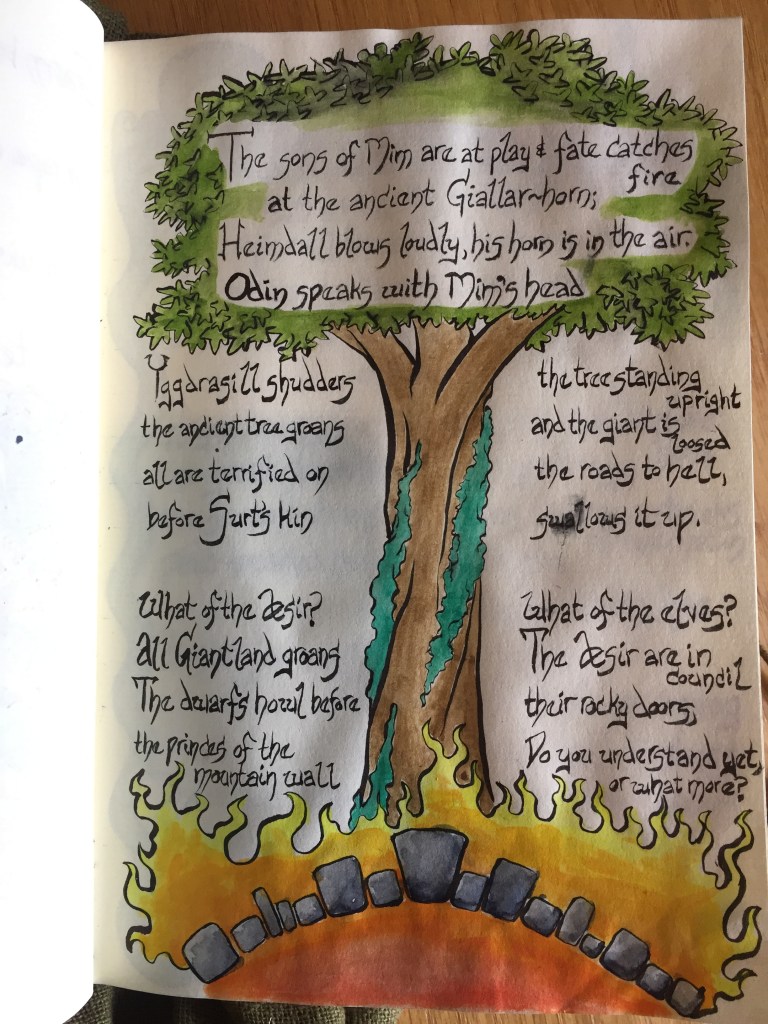 The sons of Mim are at play & fate catches
fire
at the ancient Giallar~horn;
Heimdall blows loudly, his horn is in the air.
Odin speaks with Mim's head
Yggdrasill shudders the tree standing
upright
the ancient tree groans and the giant is
loosed
all are terrified on the roads to hell,
before Surt's kin swallows it up.
What of the Æsir? What of the elves?
All Giantland groans The Æsir are in
council
The dwarf's howl before their rocky doors,
the princes of the Do you understand yet,
mountain wall or what more?